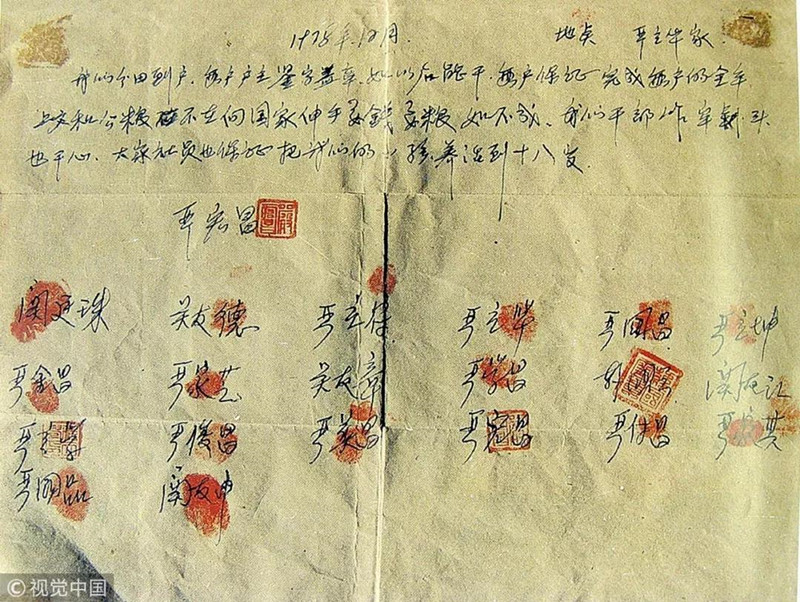 1978年12月. 地点 严立华家.
我们分田到户. 每户户主签字盖章. 如以后能干. 每户保证完成每户的全年
上交和公粮 不在向国家伸手要钱要粮 如不成. 我们干部作牢杀头
也干心. 大家社员也保证把我们的小孩养活到十八岁.
严宏昌
关廷珠 关友德 严立符 严立华 严国昌 严立坤
严金昌 严家芝 关友章 严学昌 韩国云 关友江
严立学 严俊昌 严美昌 严宏昌 严付昌 严家其
严国品 关友申
©视觉中国